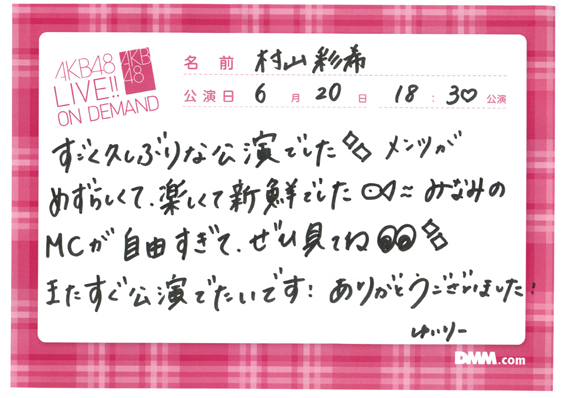 AKB48
LIVE!!
ON DEMAND
AKB
48
名前 村山彩希
公演日 6月20日 18:30公演
すごく久しぶりな公演でした メンツが
めずらしくて、楽しくて新鮮でした みなみの
MCが自由すぎて、ぜひ見てね
またすぐ公演でたいです! ありがとうございました!
ゆいりー
DMM.com